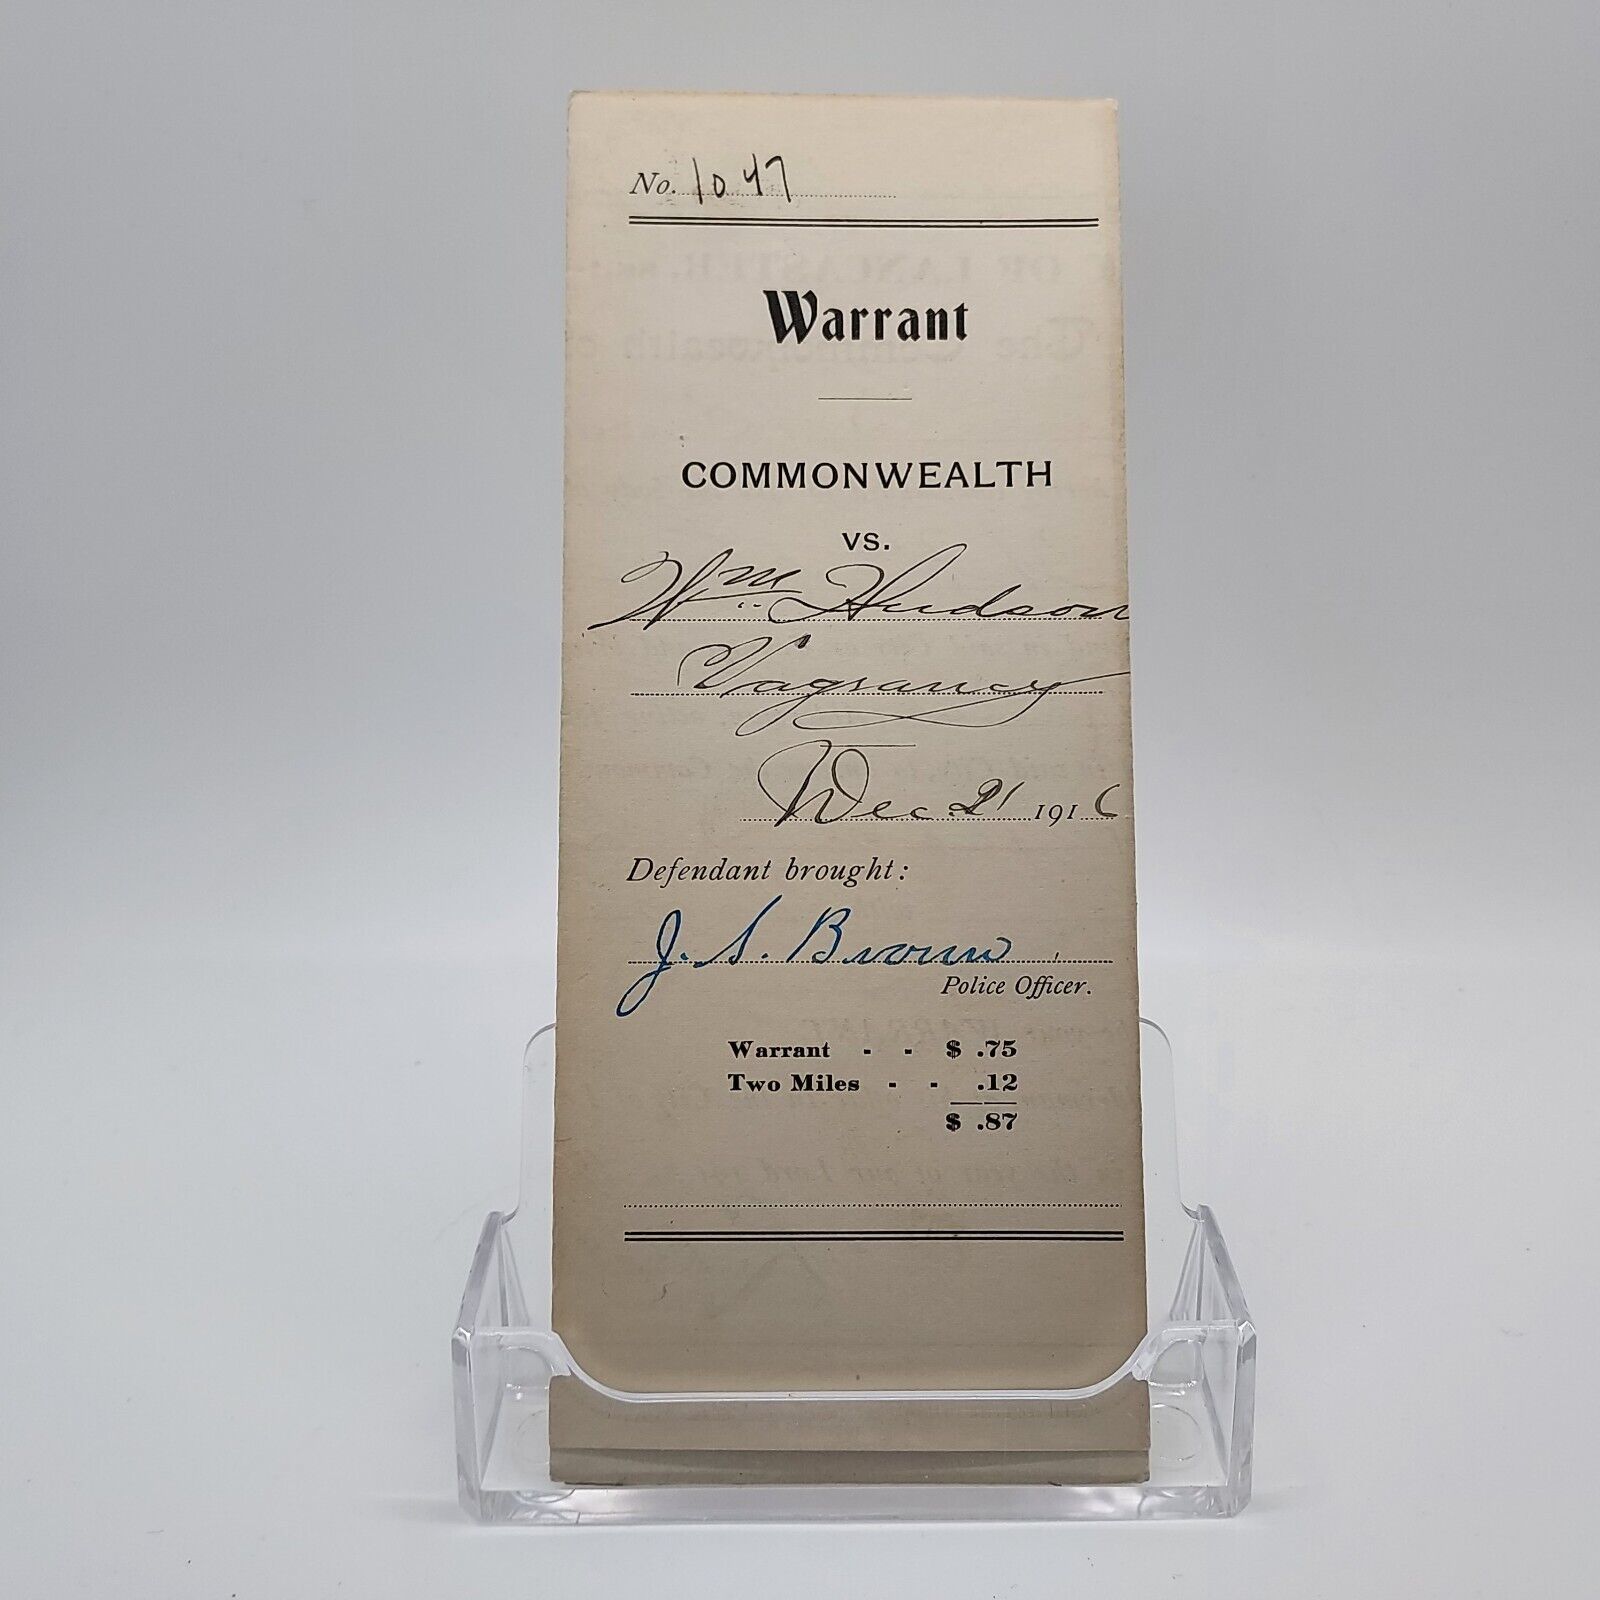 No. 1047
Warrant
COMMONWEALTH
VS.
Wm Hudson
Vagrancy
Dec. 21 1916
Defendant brought:
J. S. Brown
Police Officer.
Warrant - - $ .75
Two Miles - - .12
$ .87